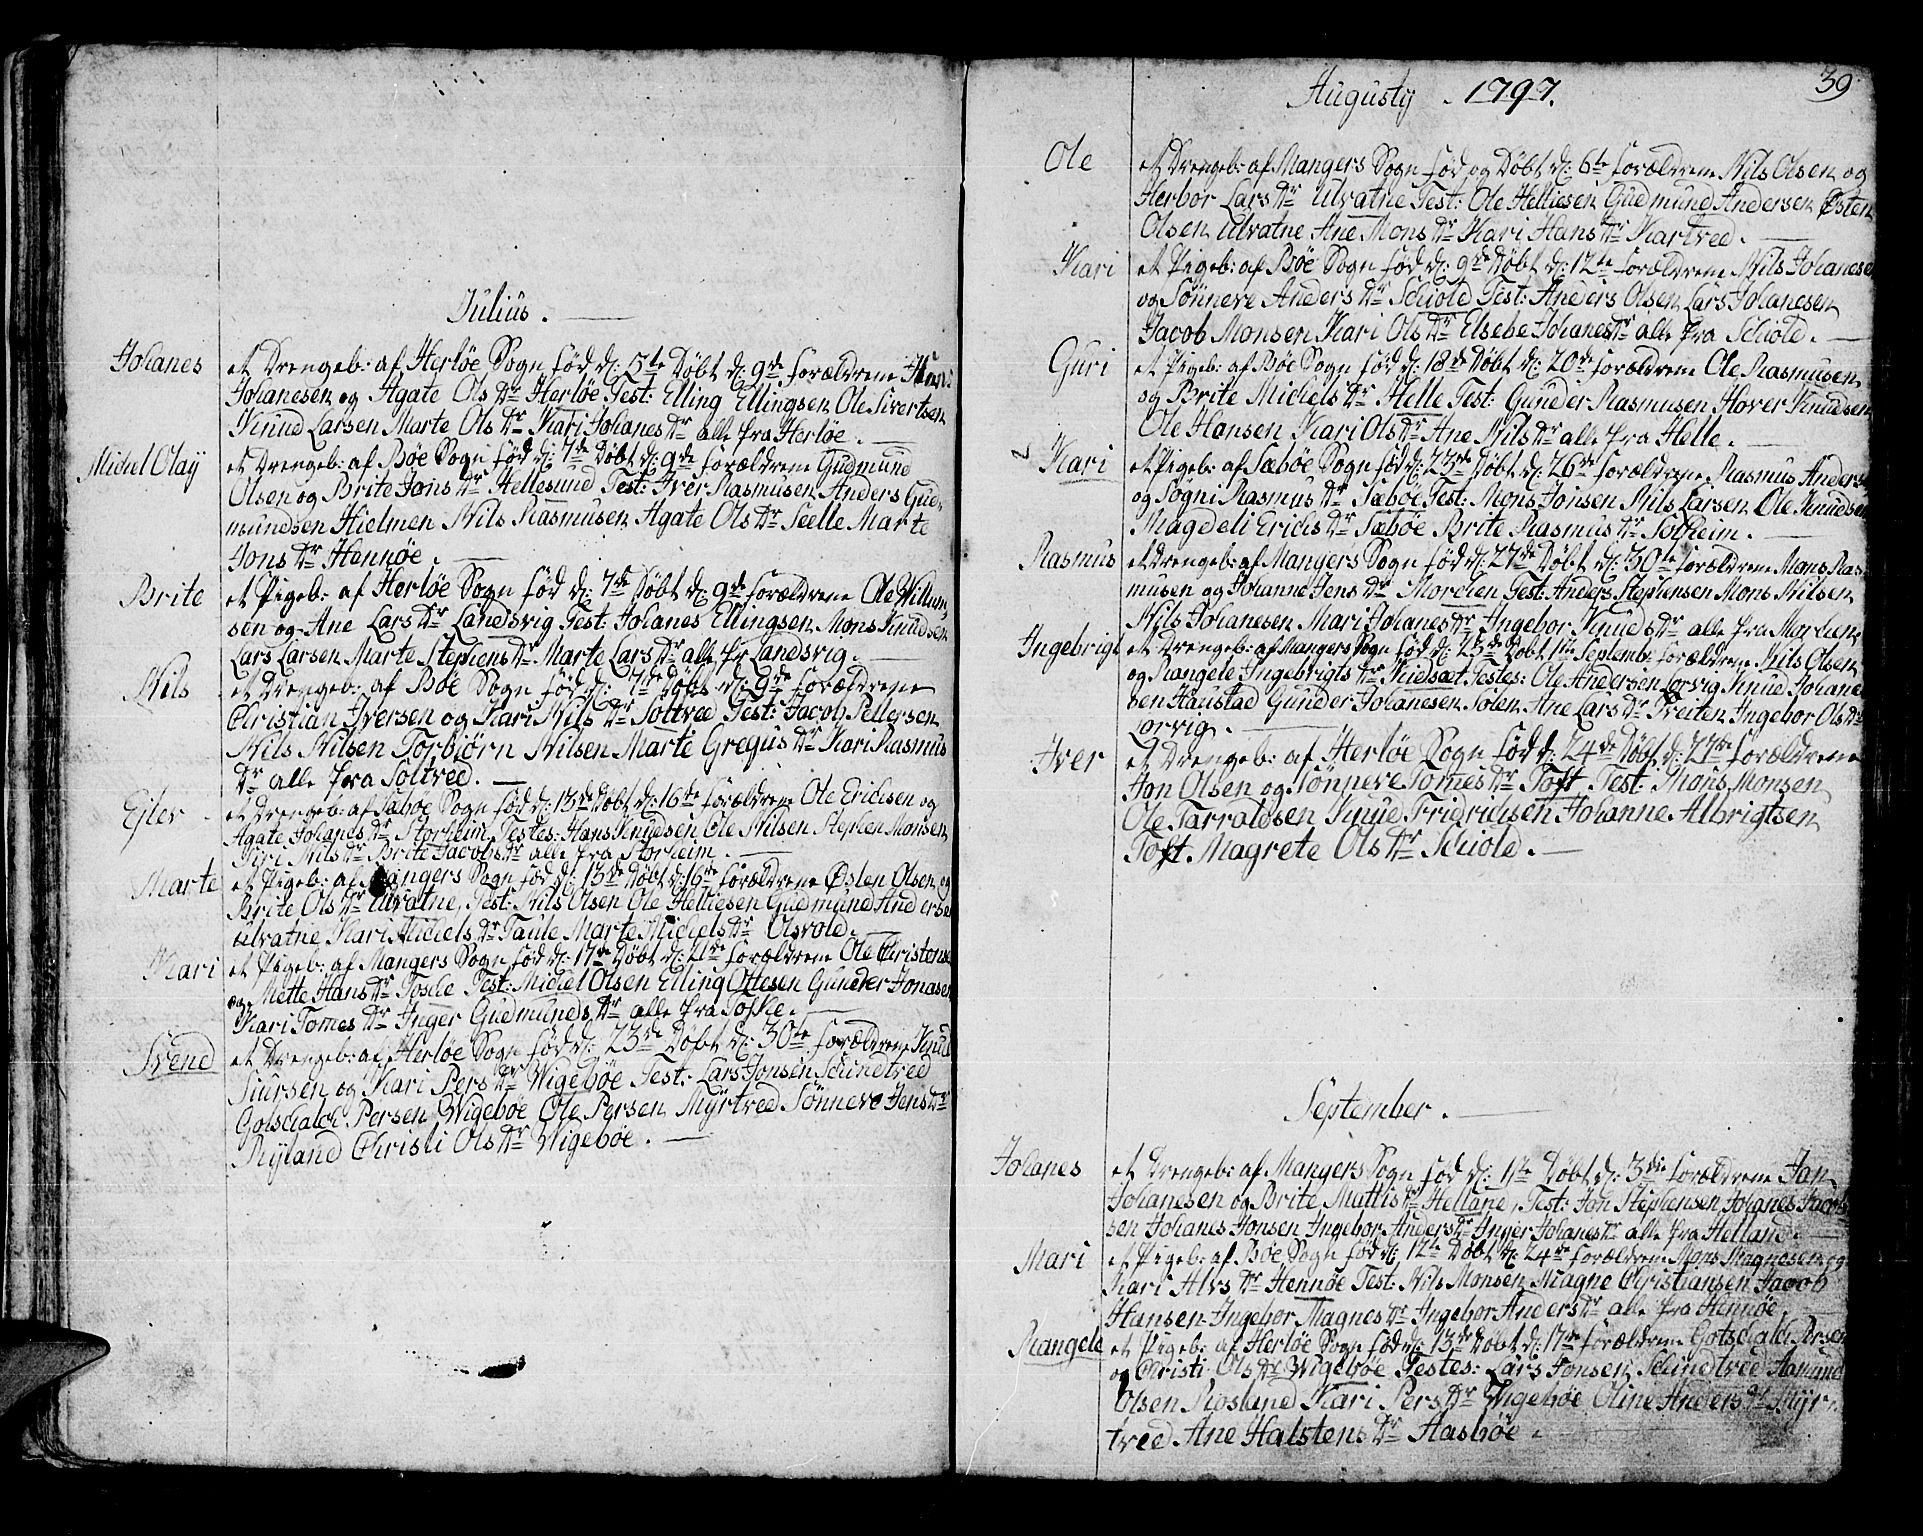 Julius.
Johanes
et Drengeb: af Herløe Sogn fød d: 5te Døbt d: 9de forældrene
Johanesen og Agate Ols Dr Herløe Test: Elling Ellingsen Ole Sivertsen
Knud Larsen Marte Ols Dr Kari Johanes Dr alle fra Herløe.
Michel Olay
et Drengeb: af Bøe Sogn fød d: 7de Døbt d: 9de forældrene Gudmund
Olsen og Brite Jons Dr Hellesund Test: Iver Rasmusen Anders Gud-
mundsen Hielmen Nils Rasmusen Agate Ols Dr Seelle Marte
Jons Dr Hennøe.
Brite
et Pigeb: af Herløe Sogn fød d: 7de Døbt d: 9de forældrene Ole Willum
sen og Ane Lars Dr Landsvig Test: Johanes Ellingsen Mons Knudsen
Lars Larsen Marte Stephens Dr Marte Lars Dr alle fr Landsvig.
Nils
et Drengeb: af Bøe Sogn fød d: 7de Døbt d: 9de forældrene
Christian Iversen og Kari Nils Dr Soltved Test: Jacob Pettersen
Nils Nilsen Torbiørn Nilsen Marte Gregus Dr Kari Rasmus
Dr alle fra Soltved.
Ejler
et Drengeb: af Sæbøe Sogn fød d: 13de Døbt d: 16de forældrene Ole Erichsen og
Agate Johanes Dr Storheim Testes: Hans Knudsen Ole Nilsen Stephen Monsen
Siri Nils Dr Brite Jacobs Dr alle fra Storheim.
Marte
et Pigeb: af Mangers Sogn fød d: 13de Døbt d: 16de forældrene Østen Olsen og
Brite Ols Dr Ulvatne, Test: Nils Olsen Ole Helliesen Gudmund Andersen
Ulvatne Kari Michels Dr Taule Marte Michels Dr Olsvold.
Kari
et Pigeb: af Mangers Sogn fød d: 17de Døbt d: 21de forældrene Ole Christens
og Mette Hans Dr Toske Test: Michel Olsen Elling Ottesen Gunder Jonasen
Kari Tomes Dr Inger Gudmunds Dr alle fra Toske.
Svend
et Drengeb: af Herløe Sogn fød d: 23de Døbt d: 30te forældrene Knud
Siursen og Kari Pers Dr Wigebøe Test: Lars Jonsen Schindtved
Gotschalch Persen Wigebøe Ole Persen Myrtved Sønneve Jens Dr
Ryland Christi Ols Dr Wigebøe.
Augusty 1797.
39
Ole
et Drengeb: af Mangers Sogn fød og Døbt d: 6te forældrene Nils Olsen og
Herbor Lars Dr Ulvatne Test: Ole Helliesen Gudmund Andersen Østen
Olsen Ulvatne Ane Mons Dr Kari Hans Dr Kartved.
Kari
et Pigeb: af Bøe Sogn fød d: 9de Døbt d: 12te forældrene Nils Johanesen
og Sønneve Anders Dr Schold Test: Anders Olsen Lars Johanesen
Jacob Monsen Kari Ols Dr Elsebe Johanes Dr alle fra Schold.
Guri
et Pigeb: af Bøe Sogn fød d: 18de Døbt d: 20de forældrene Ole Rasmusen
og Brite Michels Dr Helle Test: Gunder Rasmusen Hover Knudsen
Ole Hansen Kari Ols Dr Ane Nils Dr alle fra Helle.
Kari
et Pigeb: af Sæbøe Sogn fød d: 23de Døbt d: 26de forældrene Rasmus Anders
og Sogni Rasmus Dr Sæbøe Test: Mons Jonsen Nils Larsen Ole Knudsen
Magdeli Erichs Dr Sæbøe Brite Rasmus Dr Solheim.
Rasmus
et Drengeb: af Mangers Sogn fød d: 27de Døbt d: 30te forældrene Mons Ras
musen og Johanne Jens Dr Mordien Test: Anders Stephensen Mons Nilsen
Nils Johanesen Mari Johanes Dr Ingebor Knuds Dr alle fra Mordien
Ingebrigt
et Drengeb: af Mangers Sogn fød d: 25de Døbt 1te Septemb: forældrene Nils Olsen
og Rangele Ingebrigts Dr Kielsæt Testes: Ole Andersen Lorvig Knud Johane
sen Haustad Gunder Johanesen Solen Ane Lars Dr Tveiten Ingebor Ols Dr
Lorvig.
Iver
et Drengeb: af Herløe Sogn fød d: 24de Døbt d: 27de forældrene
Jon Olsen og Sønneve Tomes Dr Toft Test: Mons Monsen
Ole Tarraldsen Knud Fridrichsen Johanne Albrigtsen
Toft Magrete Ols Dr Schold.
September.
Johanes
et Drengeb: af Mangers Sogn fød d: 1te Døbt d: 3die forældrene Jan
Johanesen og Brite Mattis Dr Hellane, Test: Jon Stephensen Johanes Jacob
sen Johanes Jonsen Ingebor Anders Dr Inger Johanes Dr alle fra Helland.
Mari
et Pigeb: af Bøe Sogn fød d: 12te Døbt d: 24de forældrene Mons Magnesen og
Kari Alvs Dr Hennøe Test: Nils Monsen Magne Christiansen Jacob
Hansen Ingebor Magnes Dr Ingebor Anders Dr alle fra Hennøe.
Rangele
et Pigeb: af Herløe Sogn fød d: 13de Døbt d: 17de forældrene Gotschalch Persen
og Christi Ols Dr Wigebøe Testes: Lars Jonsen Schindtved Aamund
Olsen Rosland Kari Pers Dr Wigebøe Oline Anders Dr Myr-
tved Ane Halstens Dr Aasbøe.